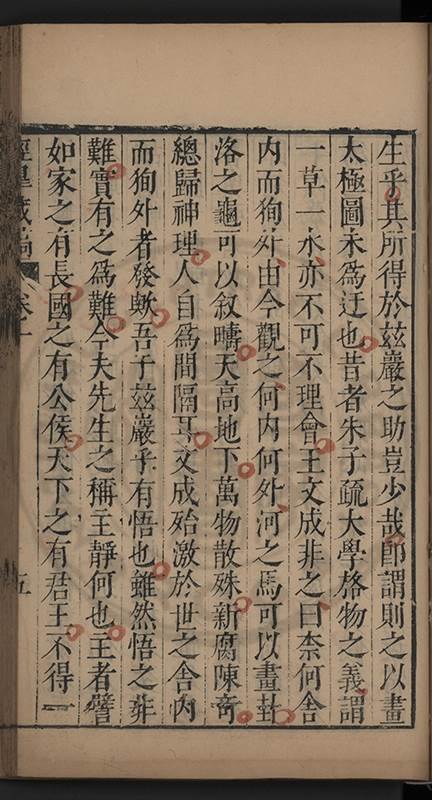 生乎其所得於茲巖之助豈少哉卽謂則之以畫
太極圖未爲迂也昔者朱子疏大學格物之義謂
一草一木亦不可不理會王文成非之曰柰何舍
內而狥外由今觀之何內何外河之馬可以畫卦
洛之龜可以叙疇天高地下萬物散殊新腐陳奇
總歸神理人自爲間隔耳文成殆激於世之舍內
而狥外者發歟吾于茲巖乎有悟也雖然悟之非
難實有之爲難今夫先生之稱主靜何也主者譬
如家之有長國之有公侯天下之有君王不得一
藏稿
卷之
五